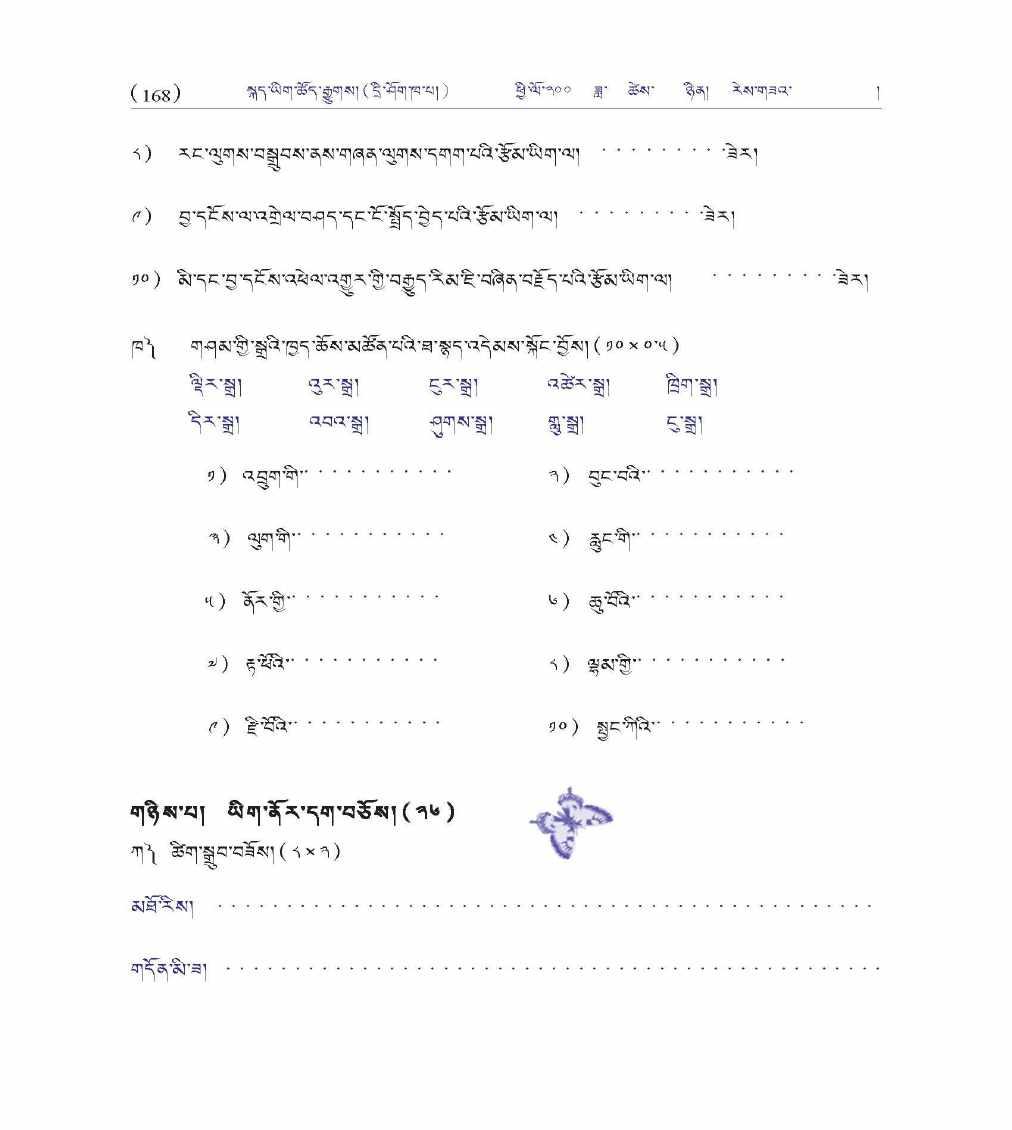 (168) སྐད་ཡིག་ཚོད་རྒྱུགས།(དྲི་ཤོག་ཁ་པ།) ཕྱི་ལོ་༢༠༠ ཟླ་ ཚེས་ ཉིན། རེས་གཟའ་ །
༨) རང་ལུགས་བསྒྲུབས་ནས་གཞན་ལུགས་དགག་པའི་རྩོམ་ཡིག་ལ། · · · · · · · · ·ཟེར།
༩) བྱ་དངོས་ལ་འགྲེལ་བཤད་དང་ངོ་སྤྲོད་བྱེད་པའི་རྩོམ་ཡིག་ལ། · · · · · · · · ·ཟེར།
༡༠) མི་དང་བྱ་དངོས་འཕེལ་འགྱུར་གྱི་བརྒྱུད་རིམ་ཇི་བཞིན་བརྗོད་པའི་རྩོམ་ཡིག་ལ། · · · · · · · · ·ཟེར།
ཁ༽ གཤམ་གྱི་སྒྲའི་ཁྱད་ཆོས་མཚོན་པའི་ཐ་སྙད་འདེམས་སྐོང་བྱོས།(༡༠×༠་༥)
ལྡིར་སྒྲ། འུར་སྒྲ། ངུར་སྒྲ། འཚེར་སྒྲ། ཁྲིག་སྒྲ།
དིར་སྒྲ། འབའ་སྒྲ། ཤུགས་སྒྲ། གླུ་སྒྲ། ངུ་སྒྲ།
༡) འབྲུག་གི་· · · · · · · · · · · ༢) བུང་བའི་· · · · · · · · · · ·
༣) ལུག་གི་· · · · · · · · · · · ༤) རླུང་གི་· · · · · · · · · · ·
༥) ནོར་གྱི་· · · · · · · · · · · ༦) ཆུ་བོའི་· · · · · · · · · · ·
༧) རྟ་ཕོའི་· · · · · · · · · · · ༨) ལྷམ་གྱི་· · · · · · · · · · ·
༩) རྫི་བོའི་· · · · · · · · · · · ༡༠) སྤྱང་ཀིའི་· · · · · · · · · · ·
གཉིས་པ། ཡིག་ནོར་དག་བཅོས།(༣༦)
ཀ༽ ཚིག་སྒྲུབ་བཟོས།(༨×༢)
མཐོ་རིས། · · · · · · · · · · · · · · · · · · · · · · · · · · · · · · · · · · · · · ·
གདོན་མི་ཟ། · · · · · · · · · · · · · · · · · · · · · · · · · · · · · · · · · · · · · ·